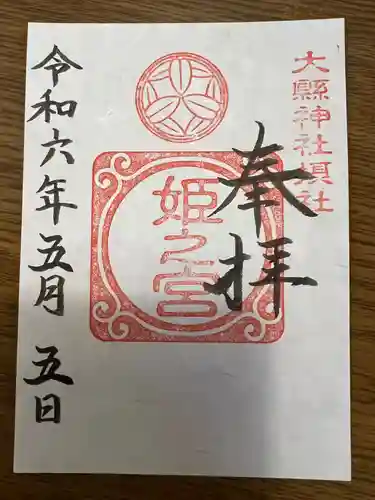 大縣神社摂社
奉拝
姫之宮
令和六年五月五日